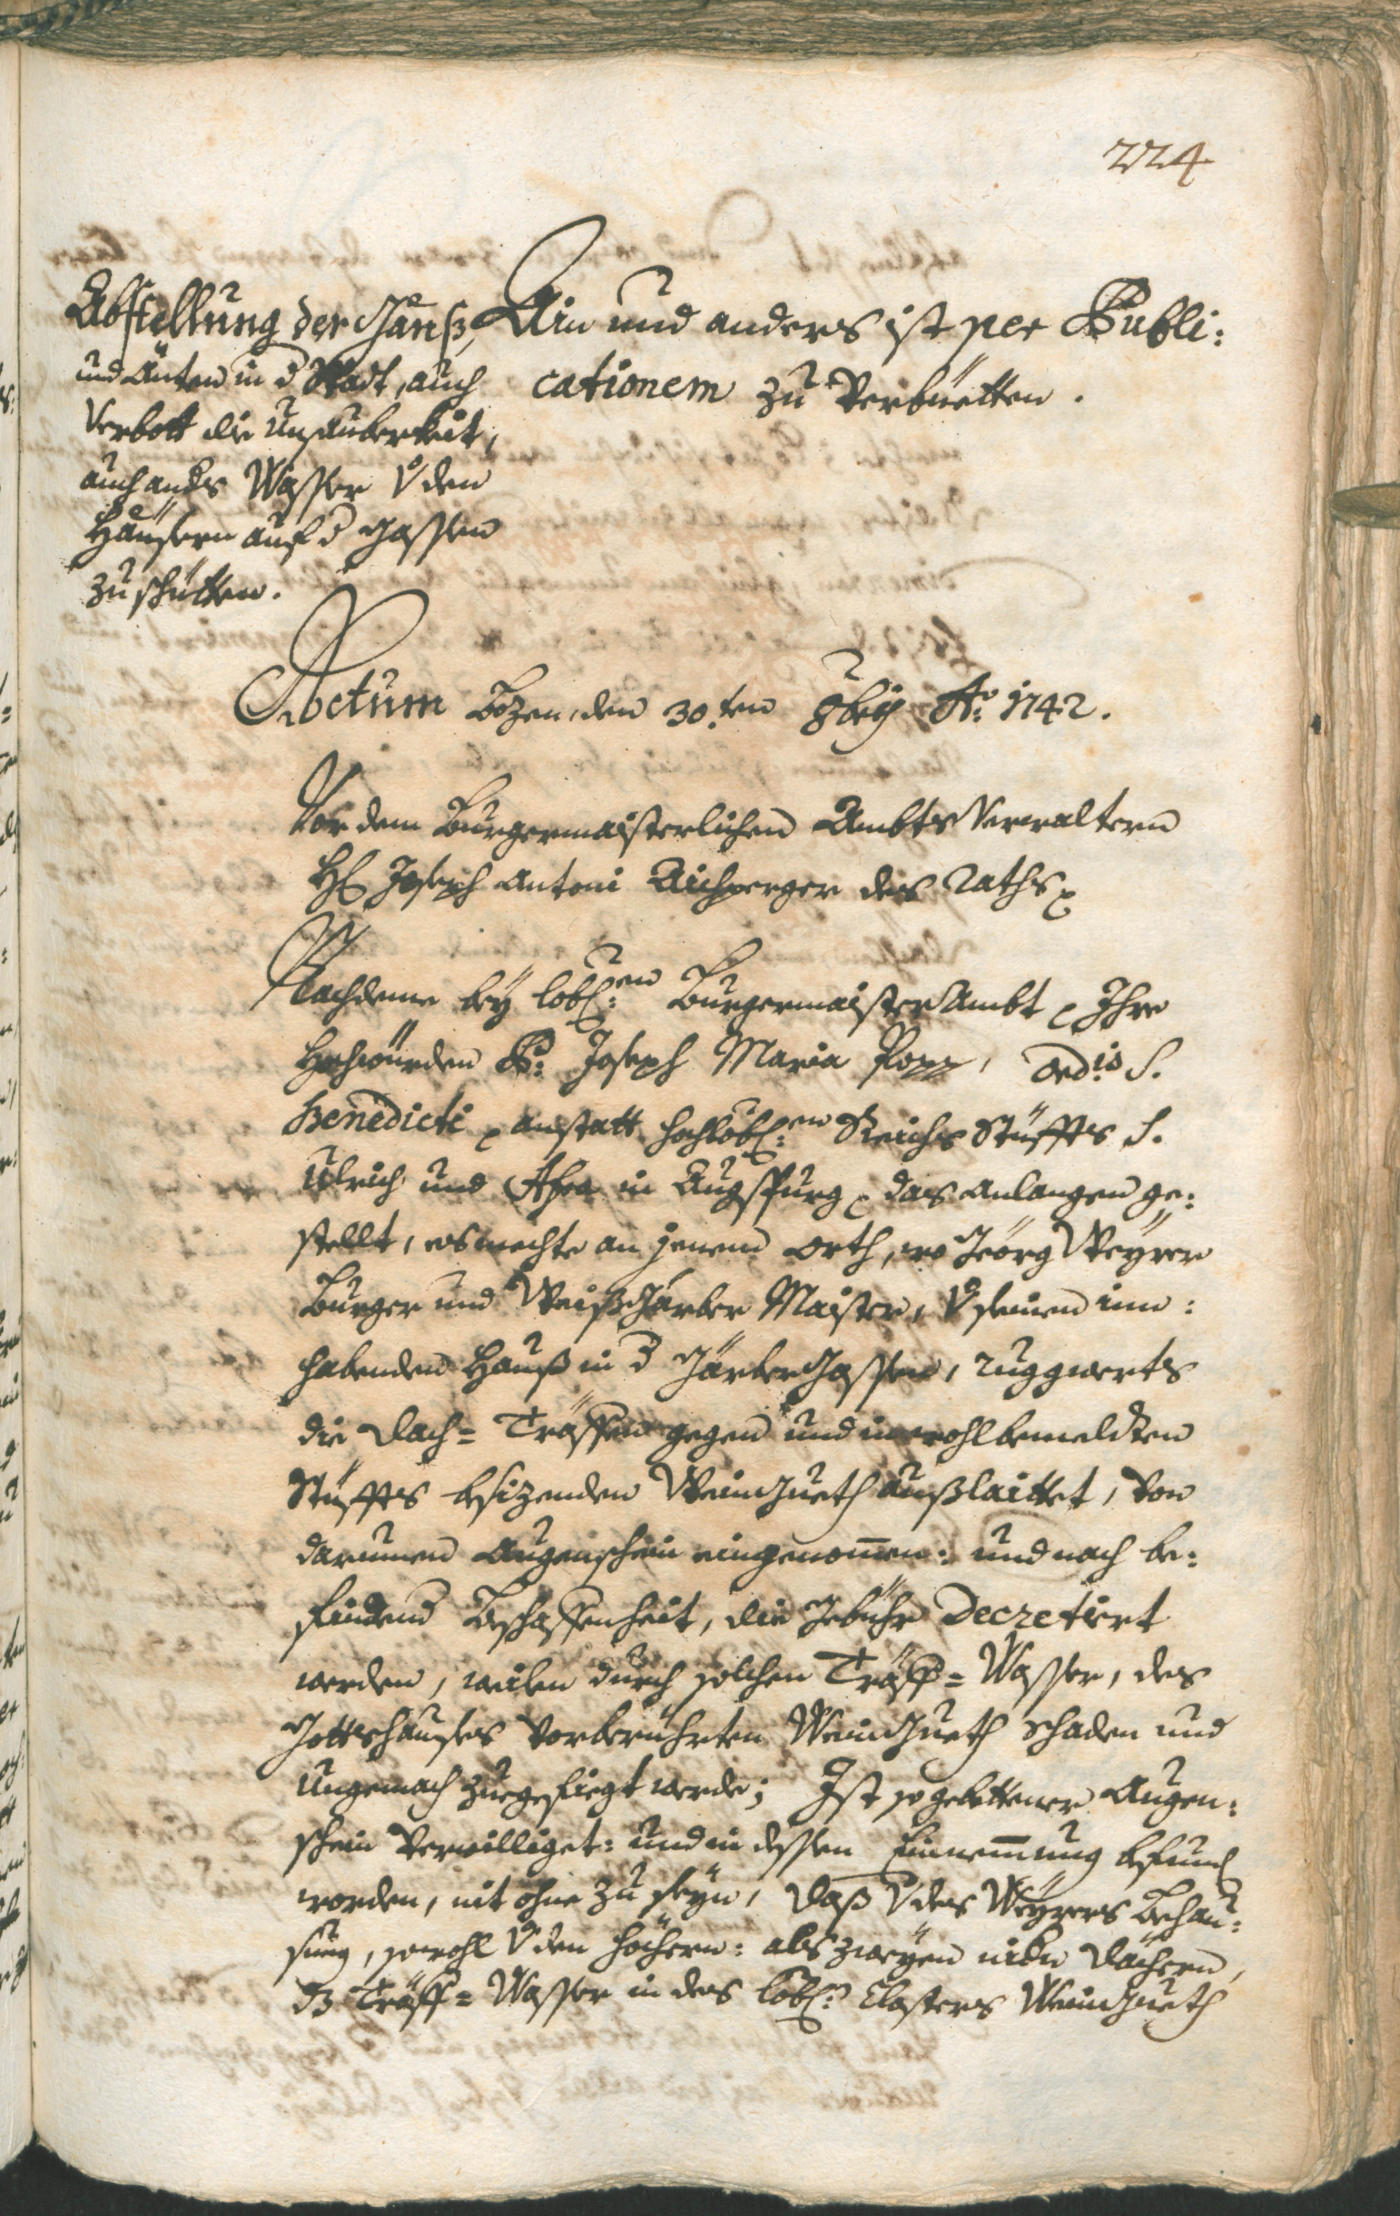 224
Abstellung der Gänß,
und Änten in d Stadt, auch
Verbott die Unsauberkeit,
auch ander Wasser V den
Häusern auf d Gassen
zu schütten.
Ain und anders ist per Publi:
cationem zu Verbüetten.
Actum Bozen, den 30.ten 8bris Ao: 1742.
Vor dem Burgermaisterlichen Ambts Verwaltern
H Joseph Antoni Aichperger des Raths
Nachdeme bey lobl:en Burgermaister Ambt, Ihro
Hochwürden P: Joseph Maria Popp, Ordis S.
Benedicti, anstatt hochlobl:en Reichs Stüffts S.
Ulrich und Afra in Augspurg, das anlangen ge:
stellt, es mechte an jenem Orth, wo Jeörg Weyrer
Burger und Weißgärber Maister, V seinen inn:
habenden Hauß in d Gärber Gassen, ruggwerts
die Dach= Tröpffen gegen und in wohlbemeldten
Stüffts besizenden Weingueth außlaittet, Von
darumen Augenschein eingenommen: und nach be:
findend Beschaffenheit, die Gebühr Decretiert
werden, weilen durch solchen Tröpff= Wasser, des
Gottshauses Vorberührten Weingueth schaden und
Ungemach zuegefiegt werde; Ist so gebettener Augen:
schein Verwilliget: und in dessen Einnemmung befund
worden, nit ohne zu seyn, daß V des Weyrers Behau:
sung, sowohl V den höchern: als zweyen nidern Dächern,
dz Tröpff= Wasser in des lobl: Closters Weingueth